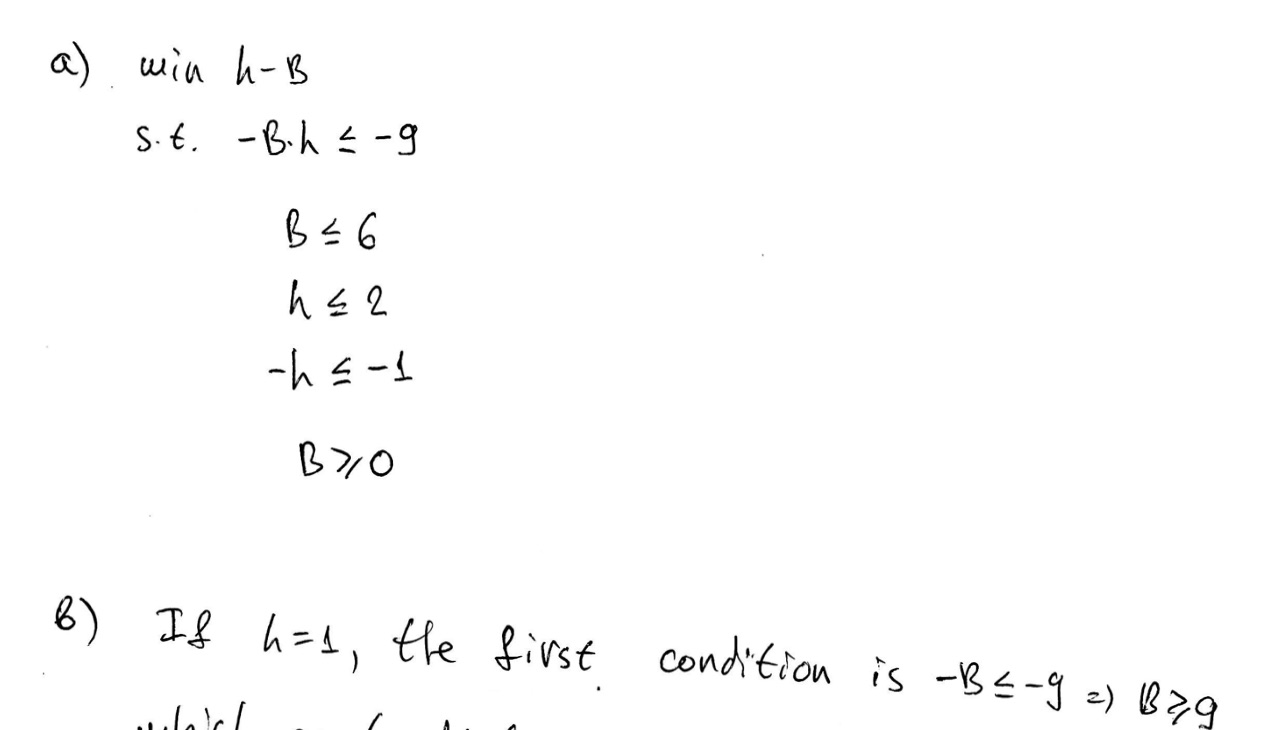 a) min h-B
s.t. -B·h ≤ -9
B ≤ 6
h ≤ 2
-h ≤ -1
B ⩾ 0
b) If h=1, the first condition is -B ≤ -9 => B ⩾ 9
which